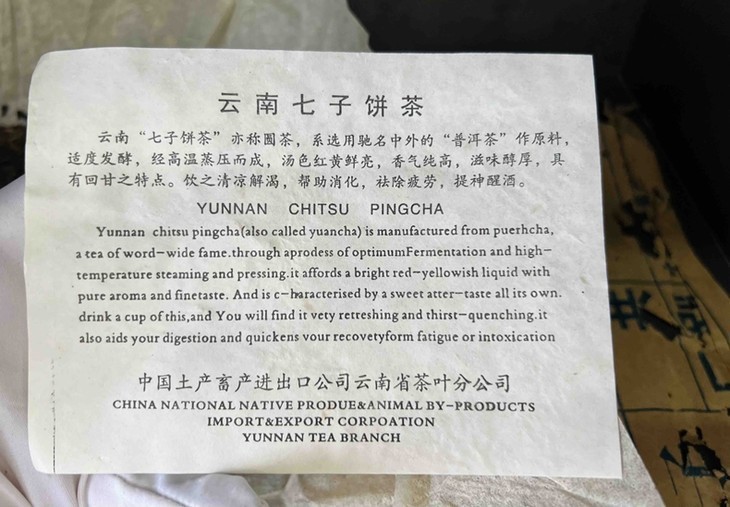 云南七子饼茶
云南“七子饼茶”亦称圆茶，系选用驰名中外的“普洱茶”作原料，
适度发酵，经高温蒸压而成，汤色红黄鲜亮，香气纯高，滋味醇厚，具
有回甘之特点。饮之清凉解渴，帮助消化，祛除疲劳，提神醒酒。
YUNNAN CHITSU PINGCHA
Yunnan chitsu pingcha(also called yuancha) is manufactured from puerhcha,
a tea of word-wide fame.through aprodess of optimumFermentation and high-
temperature steaming and pressing.it affords a bright red-yellowish liquid with
pure aroma and finetaste. And is c-haracterised by a sweet atter-taste all its own.
drink a cup of this,and You will find it vety retreshing and thirst-quenching.it
also aids your digestion and quickens vour recovetyform fatigue or intoxication
中国土产畜产进出口公司云南省茶叶分公司
CHINA NATIONAL NATIVE PRODUE&ANIMAL BY-PRODUCTS
IMPORT&EXPORT CORPOATION
YUNNAN TEA BRANCH